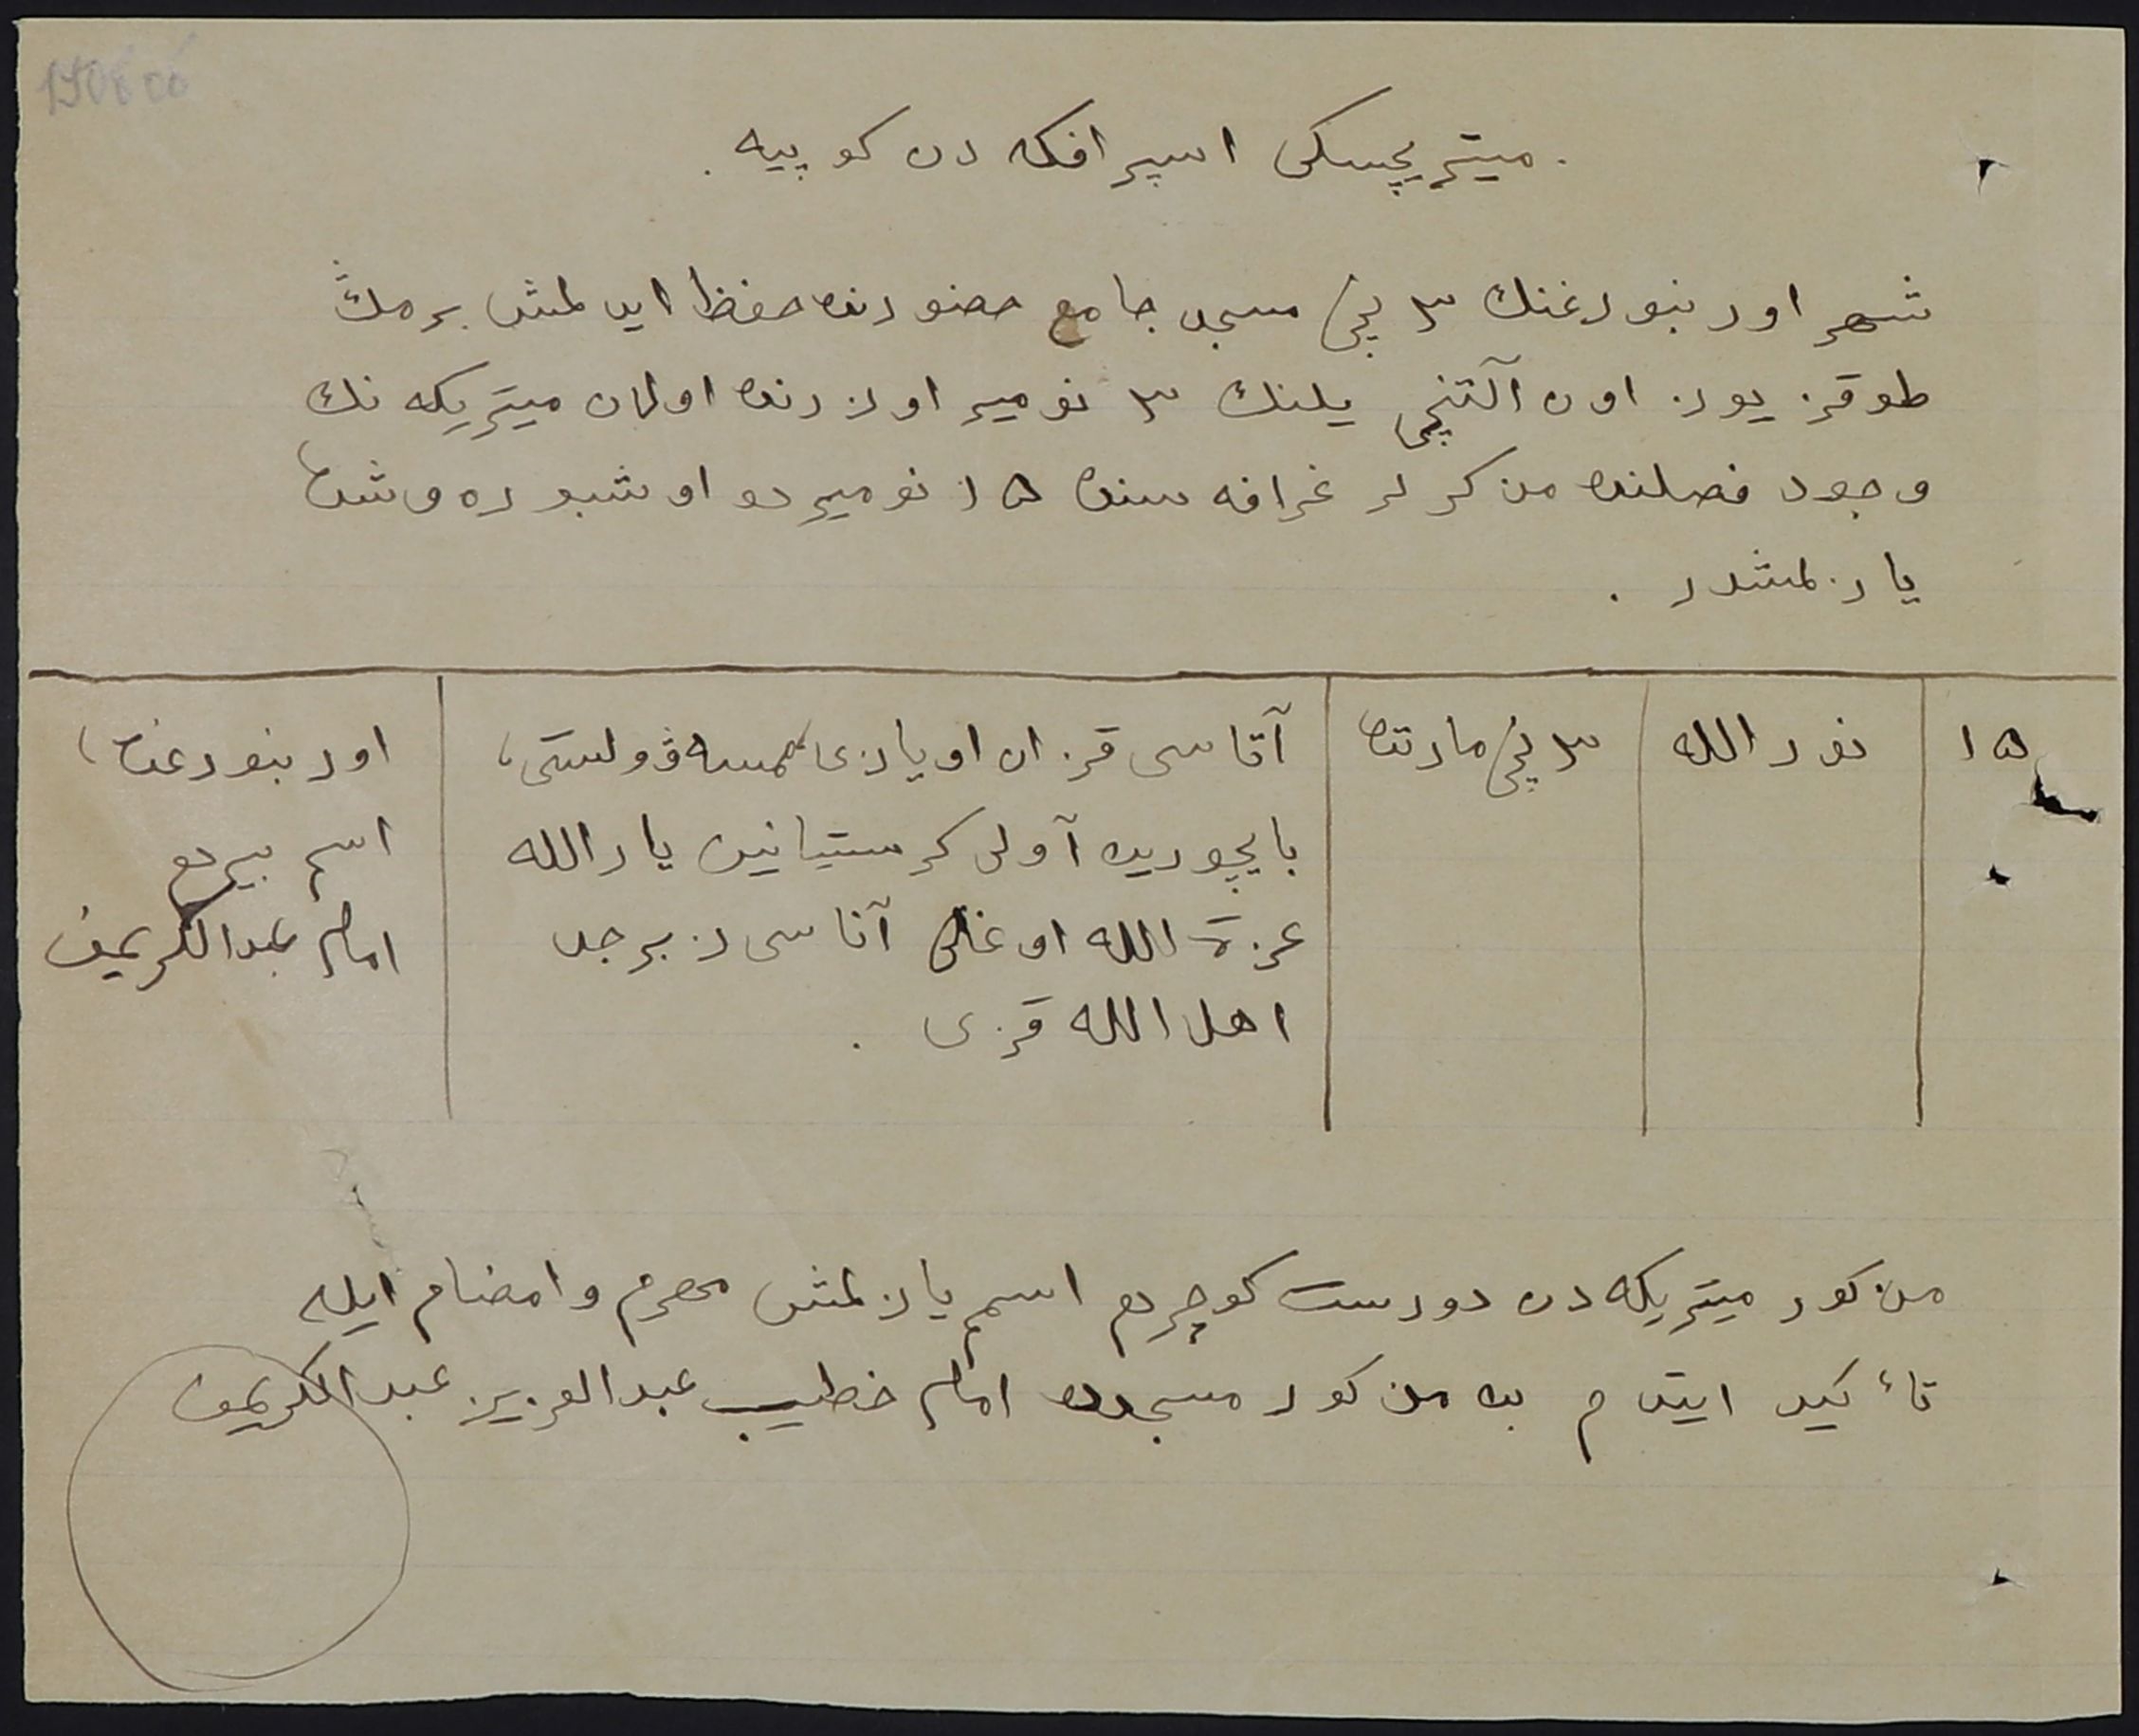 میتریچسکی اسپرافکه دن کوپیه.
شهر اورنبورغنك ٣ نچی مسجد جامع حضورنده حفظ ایدلمش بر مڭ
طوقز یوز اون آلتنچی یلنك ٣ نومیر اوزرنده اولان میتریکه نك
وجود فصلنده مذکرلر غرافه سنده ١٥ نومیردو اوشبو ره وشده
یازلمشدر.
١٥
نور الله
٣ نچی مارتده
آتاسی قزان اویازی ڤولستی،
بایچوریده آولی کرستیانین یارالله
عزة الله اوغلی آناسی زبرجد
اهل الله قزی.
اورنبورغده،
اسم بیردم
امام عبدالکریمف
مذکور میتریکه دن دورست کوچردم اسم یازلمش محرم و امضام ایله
تأکید ایتدم بن مذکور مسجدده امام خطیب عبدالعزیز عبدالکریمف